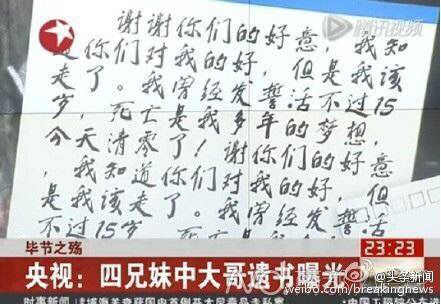 腾讯视频
谢谢你们的好意,我知
道你们对我的好,但是我该
走了。我曾经发誓活不过15
岁,死亡是我多年的梦想,
今天清零了!谢谢你们的好意
,我知道你们对我的好,但
是我该走了。我曾经发誓活
不过15岁
毕节之殇
23:23
央视:四兄妹中大哥遗书曝光
时事新闻
@头条新闻
weibo.com/breakingnews